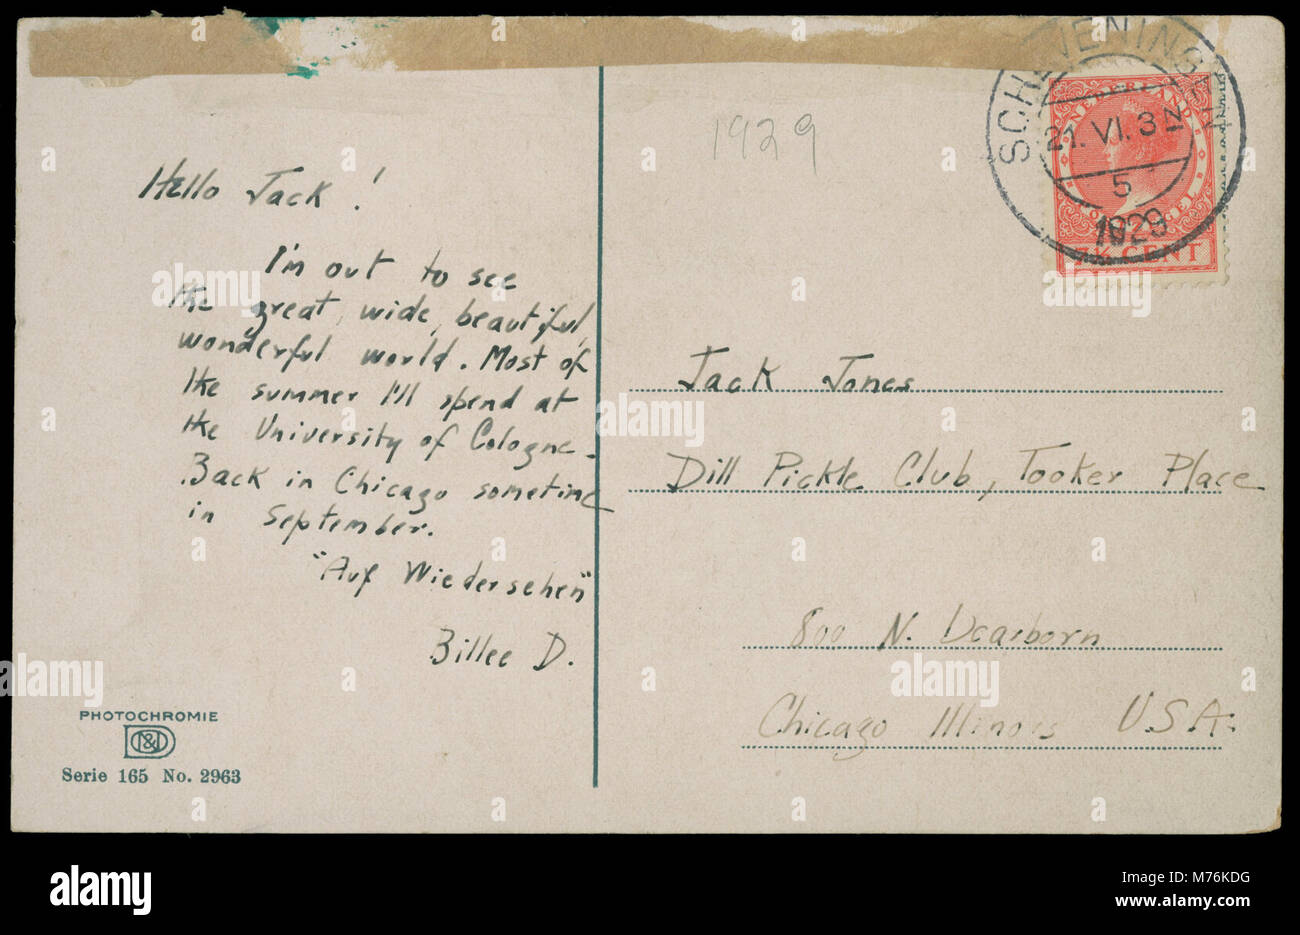 SCHEVENINGEN
21. VI. 3 N
5
1929
NEDERLAND
7½ CENT
1929
Hello Jack!
I'm out to see
the great, wide, beautiful,
wonderful world. Most of
the summer I'll spend at
the University of Cologne-
Back in Chicago sometime
in September.
"Auf Wiedersehen"
Billee D.
Jack Jones
Dill Pickle Club, Tooker Place
800 N. Dearborn
Chicago Illinois U.S.A.
PHOTOCHROMIE
Serie 165 No. 2963
alamy
Image ID: M76KDG
www.alamy.com